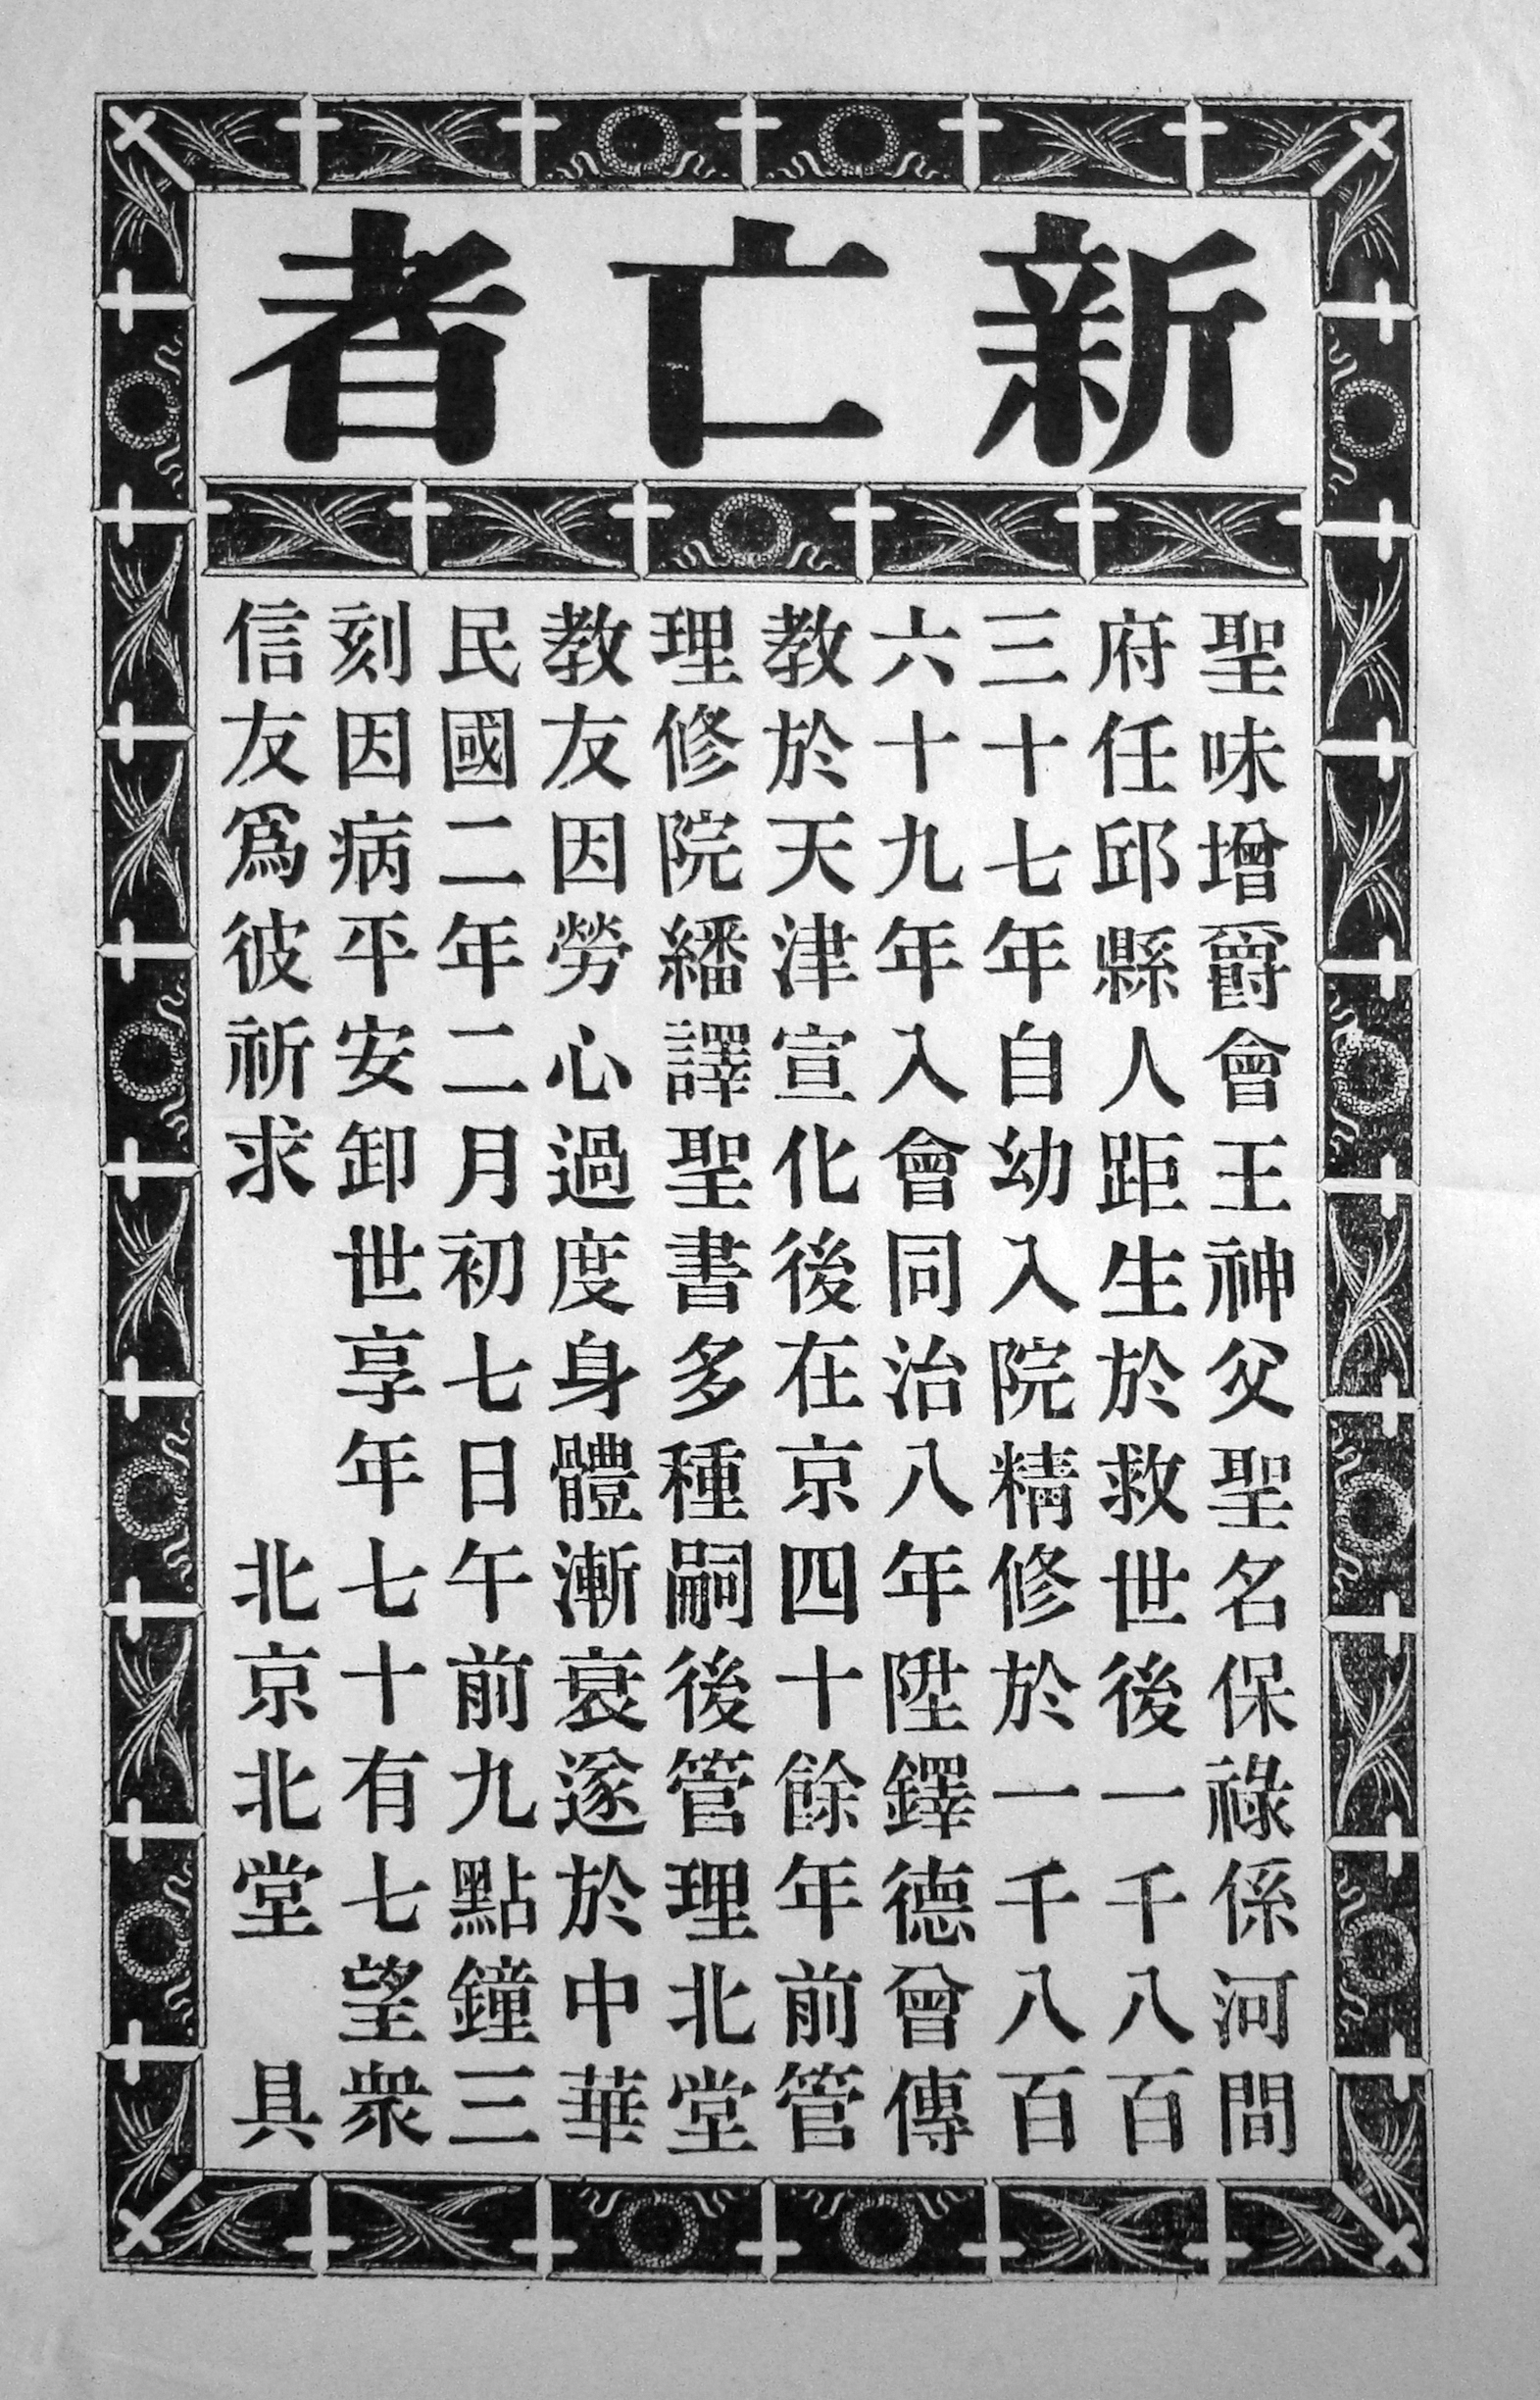 新亡者
聖味增爵會王神父聖名保祿係河間
府任邱縣人距生於救世後一千八百
三十七年自幼入院精修於一千八百
六十九年入會同治八年陞鐸德曾傳
教於天津宣化後在京四十餘年前管
理修院繙譯聖書多種嗣後管理北堂
教友因勞心過度身體漸衰遂於中華
民國二年二月初七日午前九點鐘三
刻因病平安卸世享年七十有七望衆
信友爲彼祈求　　　北京北堂　具